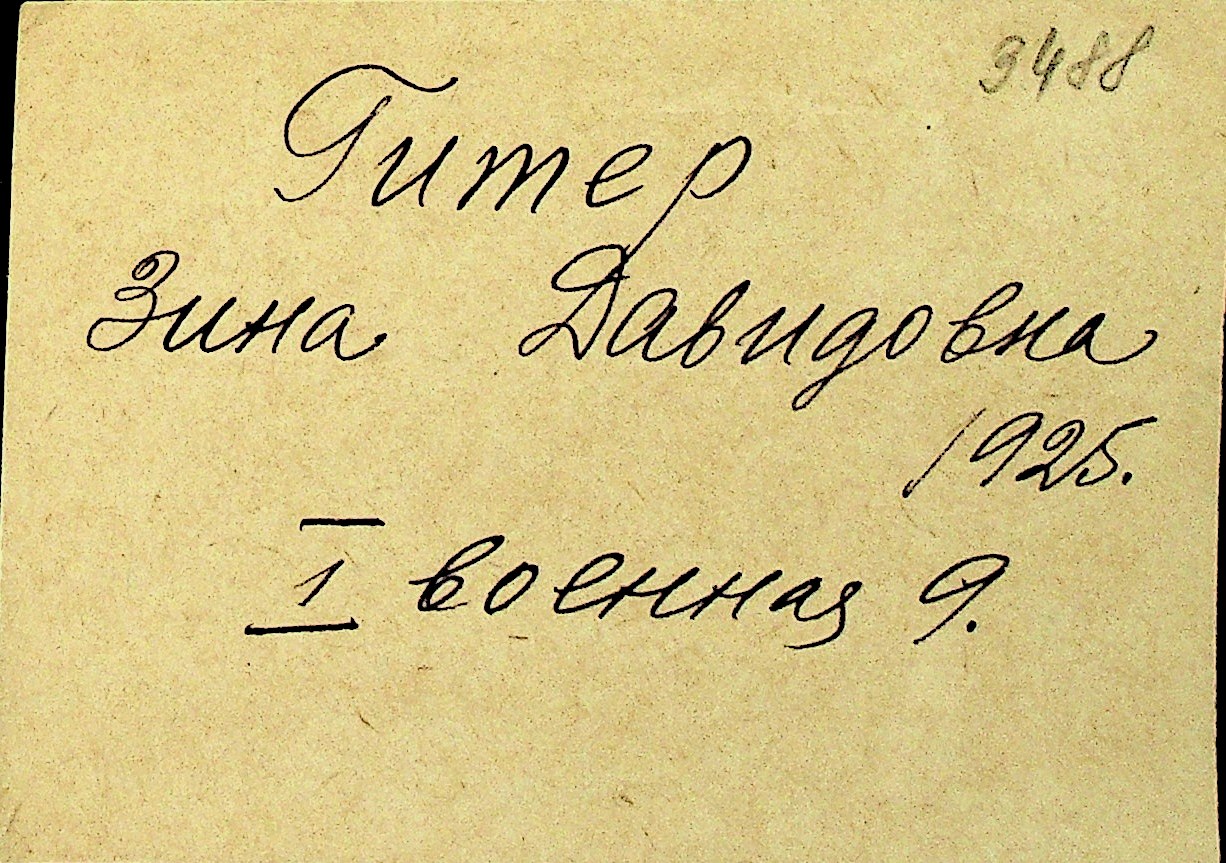 9488
Гитер
Зина Давидовна
1925.
I военная 9.